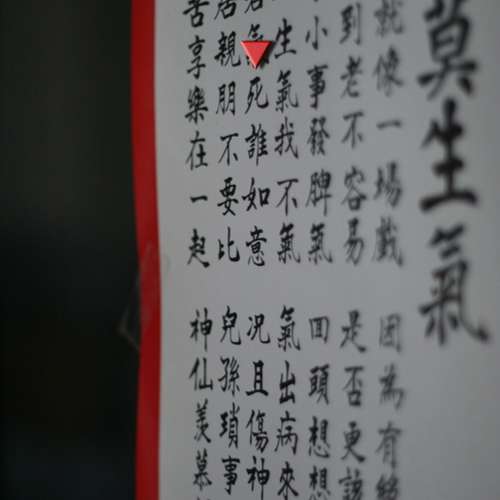 莫生氣
就像一場戲 因為有緣
到老不容易 是否更該
小事發脾氣 回頭想想
生氣我不氣 氣出病來
氣死誰如意 況且傷神
居親朋不要比 兒孫瑣事
苦享樂在一起 神仙羨慕